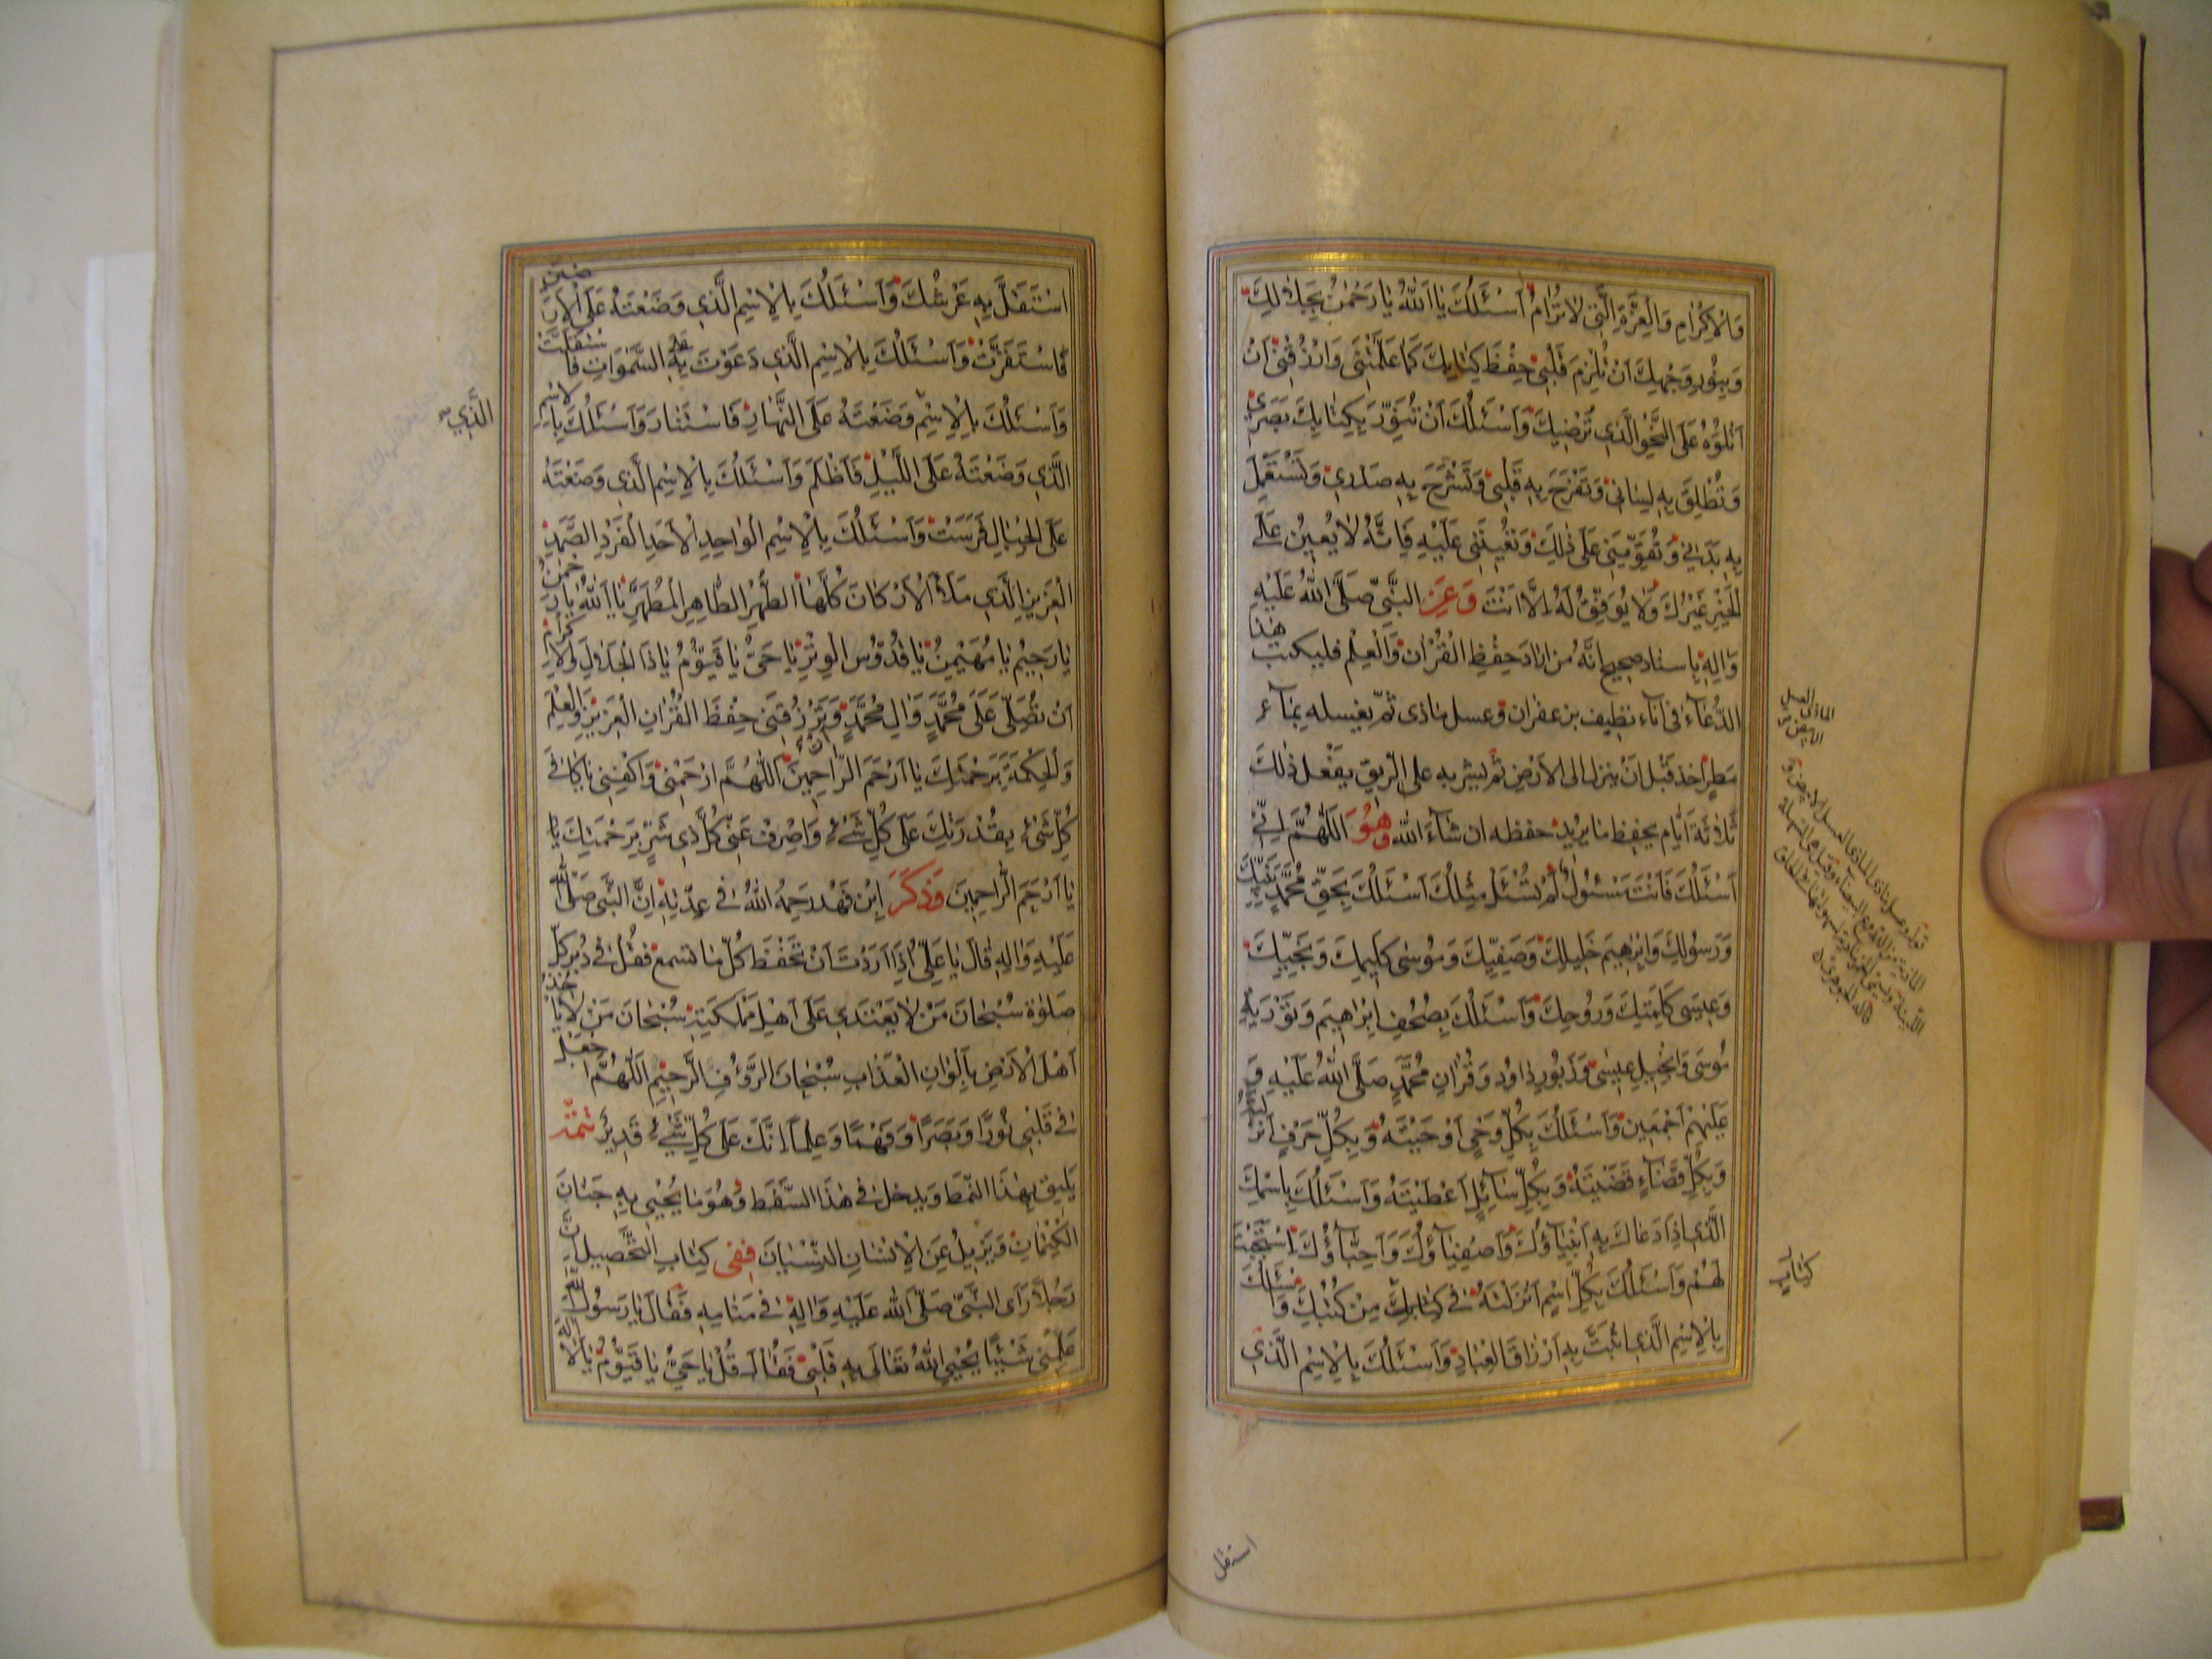 وَالْاِكْرٰامِ وَالْعِزَّةِ الَّتى لٰا تُرٰامُ اَسْئَلُكَ يٰا اَللّٰهُ يٰا رَحْمٰنُ بِجَلٰالِكَ
وَبِنُورِ وَجْهِكَ اَنْ تُلْزِمَ قَلْبى حِفْظَ كِتٰابِكَ كَمٰا عَلَّمْتَنى وَارْزُقْنى اَنْ
اَتْلُوَهُ عَلَى النَّحْوِ الَّذى تُرْضيكَ وَاَسْئَلُكَ اَنْ تُنَوِّرَ بِكِتٰابِكَ بَصَرى
وَتُطْلِقَ بِهِ لِسٰانى وَتُفَرِّحَ بِهِ قَلْبى وَتَشْرَحَ بِهِ صَدْرى وَتَسْتَعْمِلَ
بِهِ بَدَنى وَتُقَوِّيَنى عَلى ذٰلِكَ وَتُعْينَنى عَلَيْهِ فَاِنَّهُ لٰا يُعينُ عَلَى
الْخَيْرِ غَيْرُكَ وَلٰا يُوَفِّقُ لَهُ اِلَّا اَنْتَ وَعَنِ النَّبِىِّ صَلَّى اللّٰهُ عَلَيْهِ
وَالِهِ بِاسناد صحيح اَنَّهُ من اراد حِفْظَ الْقُرْانِ وَالْعِلْمِ فليكتب هٰذا
الدُّعآءَ فى اناء نظيف بزعفران وعسل ماذى ثُمَّ يغسله بمآء
مطر اخذ قَبْلَ اَنْ ينزل الى الارض ثم يشربه على الريق يفعل ذٰلك
ثَلاثَةَ اَيّام يحفظ ما يريد حفظه ان شآء اللّٰه وَهُوَ اَللّٰهُمَّ اِنّى
اَسْئَلُكَ فَاَنْتَ مَسْئُولٌ لَمْ يُسْئَلْ مِثْلُكَ اَسْئَلُكَ بِحَقِّ مُحَمَّدٍ نَبِيِّكَ
وَرَسُولِكَ وَاِبْرٰهيمَ خَليلِكَ وَصَفِيِّكَ وَمُوسى كَليمِكَ وَنَجِيِّكَ
وَعيسى كَلِمَتِكَ وَرُوحِكَ وَاَسْئَلُكَ بِصُحُفِ اِبْرٰاهيمَ وَتَوْرٰيةِ
مُوسَى وَاِنْجيلِ عيسى وَزَبُورِ دٰاوُدَ وَقُرْانِ مُحَمَّدٍ صَلَّى اللّٰهُ عَلَيْهِ وَ
عَلَيْهِمْ اَجْمَعينَ وَاَسْئَلُكَ بِكُلِّ وَحْىٍ اَوْحَيْتَهُ وَبِكُلِّ حَرْفٍ اَنْزَلْتَهُ
وَبِكُلِّ قَضٰآءٍ قَضَيْتَهُ وَبِكُلِّ سٰآئِلٍ اَعْطَيْتَهُ وَاَسْئَلُكَ بِاسْمِكَ
الَّذى اِذٰا دَعٰاكَ بِهِ اَنْبِيٰآؤُكَ وَاَصْفِيٰآؤُكَ وَاَحِبّٰآؤُكَ اسْتَجَبْتَ
لَهُمْ وَاَسْئَلُكَ بِكُلِّ اسْمٍ اَنْزَلْتَهُ فى كِتٰابِكَ مِنْ كُتُبِكَ وَاَسْئَلُكَ
بِالْاِسْمِ الَّذى اَثْبَتَّ بِهِ اَرْزٰاقَ الْعِبٰادِ وَاَسْئَلُكَ بِالْاِسْمِ الَّذى
الماذى العسل
الابيض
كتاب
استقل
اسْتَقَلَّ بِهِ عَرْشُكَ وَاَسْئَلُكَ بِالْاِسْمِ الَّذى وَضَعْتَهُ عَلَى الْاَرَضينَ
فَاسْتَقَرَّتْ وَاَسْئَلُكَ بِالْاِسْمِ الَّذى دَعَوْتَ بِهِ السَّمٰوٰاتِ فَاسْتَقَلَّتْ
وَاَسْئَلُكَ بِالْاِسْمِ وَضَعْتَهُ عَلَى النَّهٰارِ فَاسْتَنٰارَ وَاَسْئَلُكَ بِالْاِسْمِ
الَّذى
الَّذى وَضَعْتَهُ عَلَى اللَّيْلِ فَاَظْلَمَ وَاَسْئَلُكَ بِالْاِسْمِ الَّذى وَضَعْتَهُ
عَلَى الْجِبٰالِ فَرَسَتْ وَاَسْئَلُكَ بِالْاِسْمِ الْوٰاحِدِ الْاَحَدِ الْفَرْدِ الصَّمَدِ
الْعَزيزِ الَّذى مَلَأَ الْاَرْكٰانَ كُلَّهَا الطُّهْرِ الطّٰاهِرِ الْمُطَهَّرِ يٰا اَللّٰهُ يٰا رَحْمٰنُ
يٰا رَحيمُ يٰا مُهَيْمِنُ يٰا قُدُّوسُ الْوِتْرِ يٰا حَىُّ يٰا قَيُّومُ يٰا ذَا الْجَلٰالِ وَالْاِكْرٰامِ
اَنْ تُصَلِّىَ عَلى مُحَمَّدٍ وَالِ مُحَمَّدٍ وَتَرْزُقَنى حِفْظَ الْقُرْانِ الْعَزيزِ وَالْعِلْمَ
وَالْحِكْمَةَ بِرَحْمَتِكَ يٰا اَرْحَمَ الرّٰاحِمينَ اَللّٰهُمَّ ارْحَمْنى وَاكْفِنى يٰا كٰافى
كُلِّ شَىْءٍ بِقُدْرَتِكَ عَلى كُلِّ شَىْءٍ وَاصْرِفْ عَنّى كُلَّ ذى شَرٍّ بِرَحْمَتِكَ يٰا
يٰا اَرْحَمَ الرّٰاحِمينَ وَذَكَرَ ابْن فَهْد رَحِمَهُ اللّٰهُ فى عِدّتِهِ اَنَّ النَّبِىَّ صَلَّى اللّٰهُ
عَلَيْهِ وَالِهِ قالَ يٰا عَلِىُّ اِذٰا اَرَدْتَ اَنْ تَحْفَظَ كُلَّ مٰا تسمع فَقُلْ فى دُبُرِ كُلِّ
صَلٰوة سُبْحٰانَ مَنْ لٰا يَعْتَدى عَلى اَهْلِ مَمْلَكَتِهِ سُبْحٰانَ مَنْ لٰا يَأْخُذُ
اَهْلَ الْاَرْضِ بِاَلْوٰانِ الْعَذٰابِ سُبْحٰانَ الرَّؤُفِ الرَّحيمِ اَللّٰهُمَّ اجْعَلْ
فى قَلْبى نُورًا وَبَصَرًا وَفَهْمًا وَعِلْمًا اِنَّكَ عَلى كُلِّ شَىْءٍ قَديرٌ تَتِمَّةٌ
يَليق بِهٰذَا النَّمط وَيدخل فى هٰذَا السَّفَط وَهُوَ مٰا يُحْيى بِهِ جَنٰانَ
الْكِتْمٰانِ وَيُزيلُ عَنِ الْاِنْسٰانِ النِّسْيٰانَ فَفى كِتٰابِ التَّحْصيلِ اَنَّ
رَجُلاً رَاَى النَّبِىَّ صَلَّى اللّٰهُ عَلَيْهِ وَالِهِ فى مَنٰامِهِ فَقٰالَ يٰا رَسُولَ اللّٰهِ
عَلِّمْنى شَيْئًا يُحْيِى اللّٰهُ تَعٰالَى بِهِ قَلْبى فَقٰالَ قُلْ يٰا حَىُّ يٰا قَيُّومُ يٰا لٰا اِلٰهَ